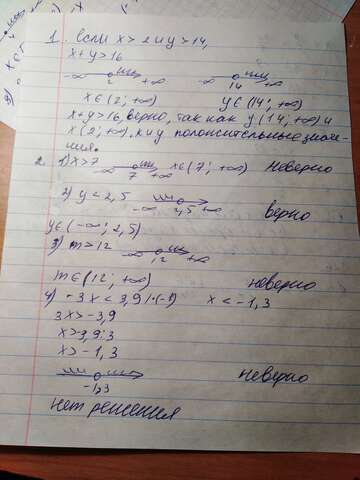 1. если x > 2 и y > 14,
x+y>16
-∞ 2 +∞ 14 +∞
x∈(2; +∞) y∈(14; +∞)
x+y>16, верно, так как y(14; +∞) и
x(2; +∞), x и y положительные
2. 1) x>7 -∞ 7 +∞ x∈(7; +∞) неверно
2) y < 2,5 -∞ 2,5 +∞ верно
y∈(-∞; 2,5)
3) m>12 -∞ 12 +∞
m∈(12; +∞) неверно
4) -3x < 3,9 |·(-1) x < -1,3
3x>-3,9
x>-3,9:3
x>-1,3
-1,3 неверно
нет решения